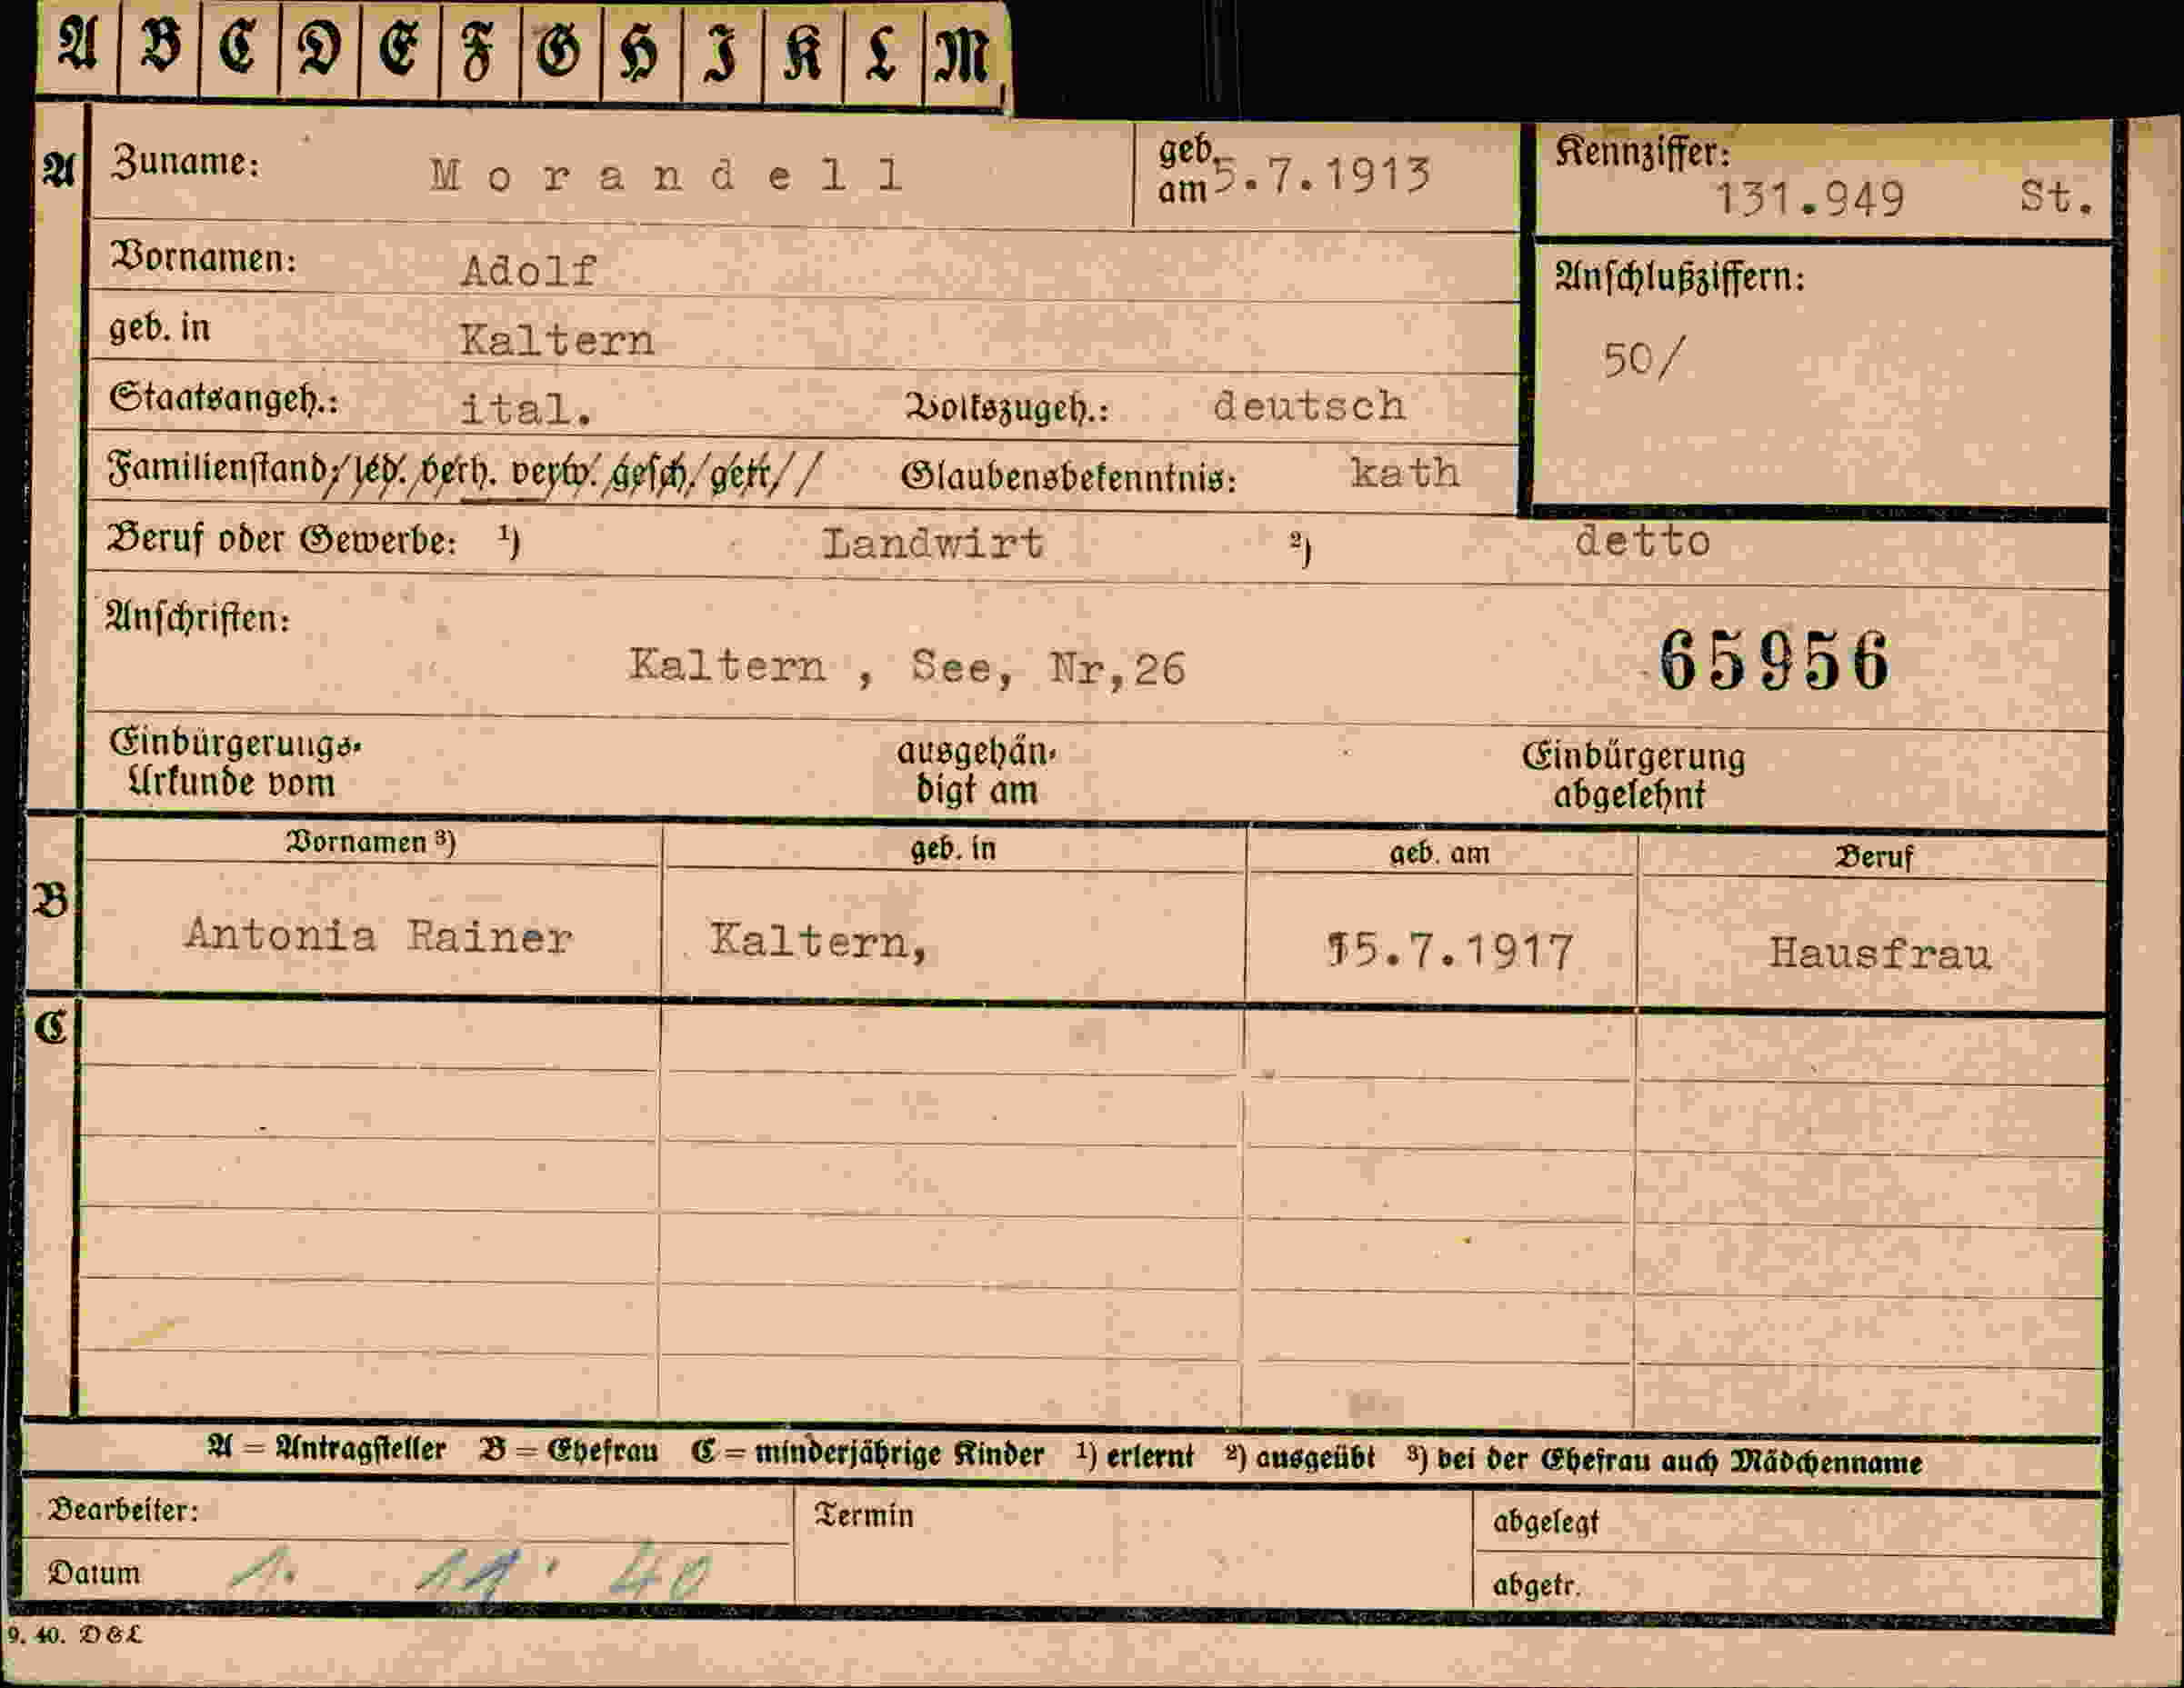 A B C D E F G H I K L M
A Zuname: Morandell geb. am 5.7.1913 Kennziffer: 131.949 St.
Vornamen: Adolf
Anschlußziffern:
geb. in Kaltern
50/
Staatsangeh.: ital. Volkszugeh.: deutsch
Familienstand: led. verh. verw. gesch. getr. Glaubensbekenntnis: kath
Beruf oder Gewerbe: 1) Landwirt 2) detto
Anschriften:
Kaltern , See, Nr,26 65956
Einbürgerungs- ausgehän- Einbürgerung
Urkunde vom digt am abgelehnt
Vornamen 3) geb. in geb. am Beruf
B Antonia Rainer Kaltern, 15.7.1917 Hausfrau
C
A = Antragsteller B = Ehefrau C = minderjährige Kinder 1) erlernt 2) ausgeübt 3) bei der Ehefrau auch Mädchenname
Bearbeiter: Termin abgelegt
Datum 1. 11. 40 abgetr.
9. 40. D&L